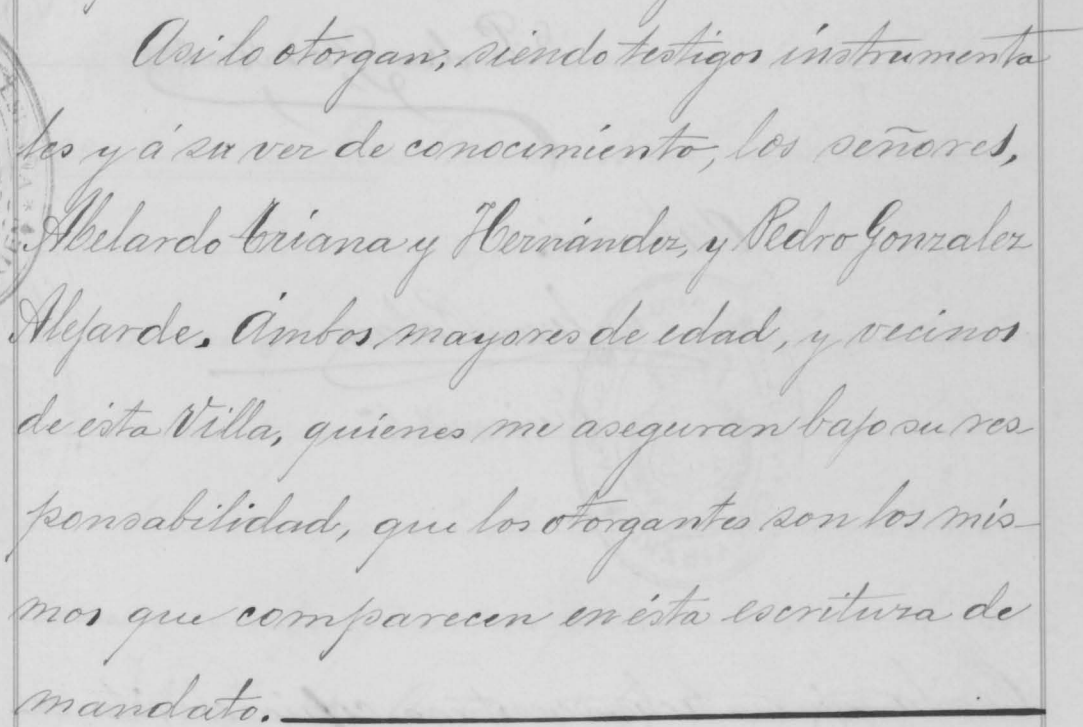 Asi lo otorgan; siendo testigos instrumenta
les y á su vez de conocimiento, los señores,
Abelardo Triana y Hernández, y Pedro Gonzalez
Alejarde. Ámbos mayores de edad, y vecinos
de ésta Villa, quiénes me aseguran bajo su res
ponsabilidad, que los otorgantes son los mis-
mos que comparecen en ésta escritura de
mandato.